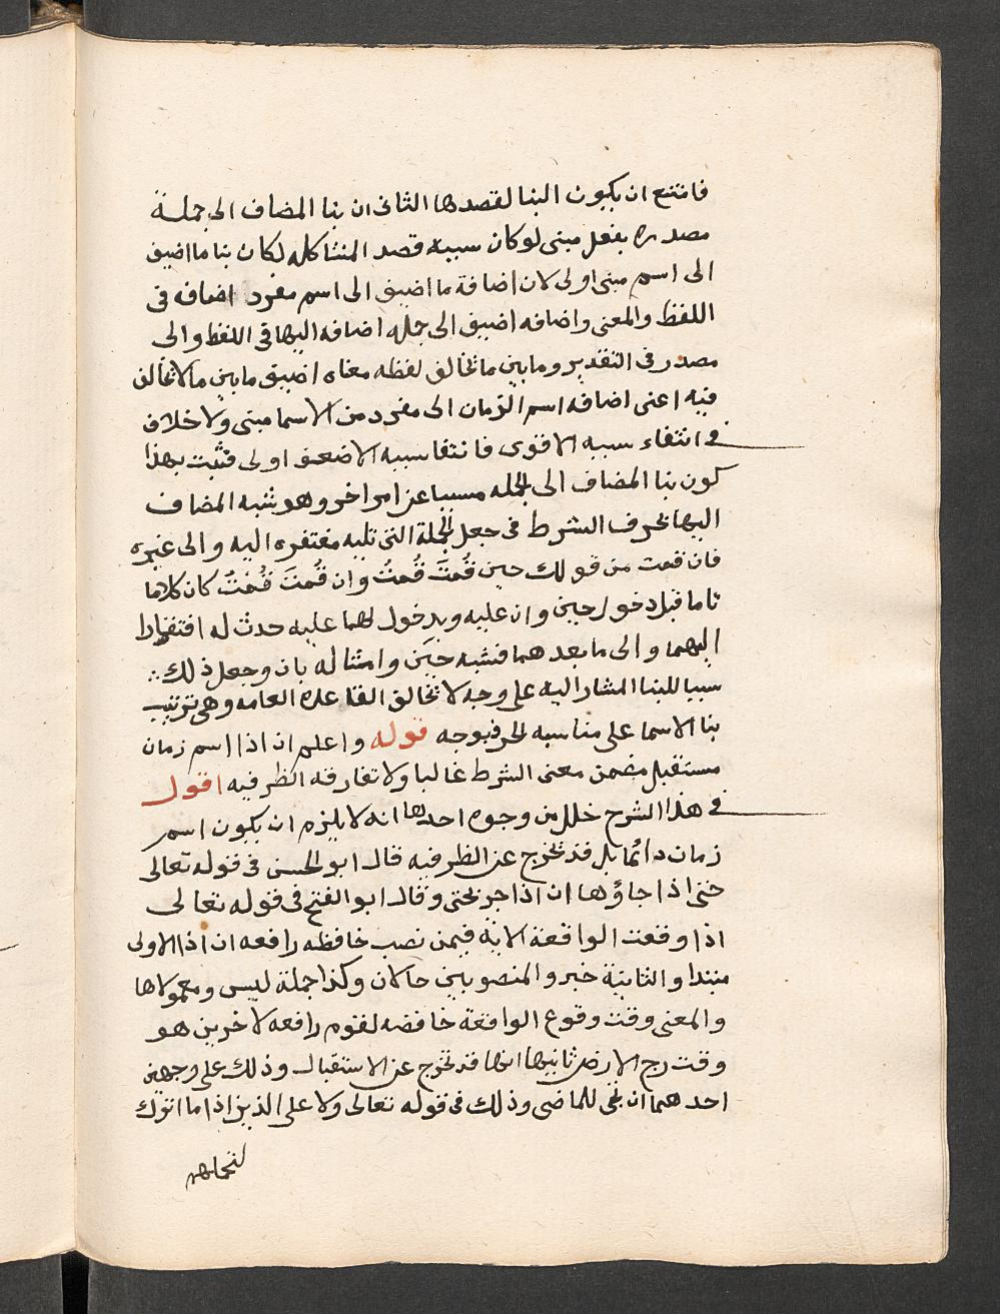 فامتنع ان يكون البنا لقصدها الثانى ان بنا المضاف الى جملة
مصدره بفعل مبنى لو كان سببه قصد المشاكله لكان بنا ما اضيف
الى اسم مبنى اولى لان اضافة ما اضيف الى اسم مفرد اضافه فى
اللفظ والمعنى واضافه اضيف الى جمله اضافه اليها فى اللفظ والى
مصدر فى التقدير وما بين ما تخالف لفظه معناه اضيق مابين مالا تخالف
فيه اعنى اضافه اسم الزمان الى مفرد من الاسما مبنى ولا خلاف
فى انتفاء سببه الاقوى فانتفا سببه الاضعف اولى فثبت بهذا
كون بنا المضاف الى الجمله مسببا عن امر اخر وهو شبه المضاف
اليها بحرف الشرط فى جعل الجملة التى تليه مفتقره اليه والى غيره
فان قمت من قولك حين قُمتَ قُمتُ وان قُمتَ قُمتُ كان كلاما
تاما قبل دخول حين وان عليه وبدخول لهما عليه حدث له افتقارا
اليهما والى ما بعدهما فشبه حين وامثاله بان وجعل ذلك ؞
سببا للبنا المشار اليه على وجه لا تخالف القاعده العامه وهى ترتيب
بنا الاسما على مناسبه الحرف بوجه قوله واعلم ان اذا اسم زمان
مستقبل مضمن معنى الشرط غالبا ولا تفارقه الظرفيه اقول
فى هذا الشرح خلل من وجوه احدها انه لا يلزم ان يكون اسم
زمان دائما بل قد تخرج عن الظرفيه قال ابو الحسن فى قوله تعالى
حتى اذا جاؤها ان اذا جر بحتى وقال ابو الفتح فى قوله تعالى
اذا وقعت الواقعة الاية فيمن نصب خافظه رافعه ان اذا الاولى
مبتدا والثانية خبر والمنصوبين حالان وكذا جملة ليس ومعمولاها
والمعنى وقت وقوع الواقعة خافضه لقوم رافعه لاخرين هو
وقت رج الارض ثانيها انها قد تخرج عن الاستقبال وذلك على وجهين
احدهما ان تجى للماضى وذلك فى قوله تعالى ولا على الذين اذا ما اتوك
لتحملهم